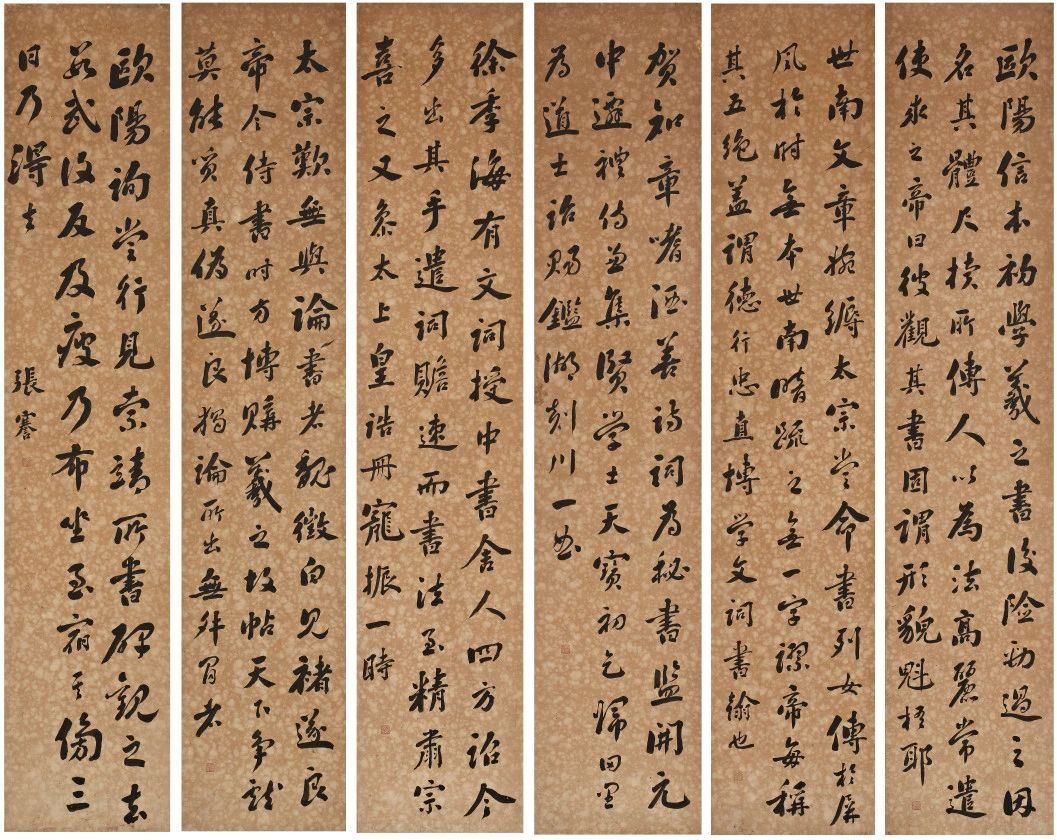 歐陽信本初學羲之書後險勁過之因
名其體尺牘所傳人以為法高麗常遣
使求之帝曰彼觀其書固謂形貌魁梧耶
世南文章婉縟太宗嘗命書列女傳於屏
風於時無本世南暗疏之無一字謬帝每稱
其五絕蓋謂德行忠直博学文詞書翰也
賀知章嗜酒善詩詞為秘書監開元
中遷禮侍兼集賢学士天寶初乞歸田里
為道士詔賜鑑湖剡川一曲
徐季海有文詞授中書舍人四方詔令
多出其手遣詞贍速而書法至精肅宗
喜之又參太上皇誥冊寵振一時
太宗歎無與論書者魏徵白見褚遂良
帝令侍書时方博購羲之故帖天下争献
莫能質真偽遂良獨論所出無舛冒者
歐陽詢嘗行見索靖所書碑觀之去
數武後反及疲乃布坐至宿其傍三
日乃得去
張謇